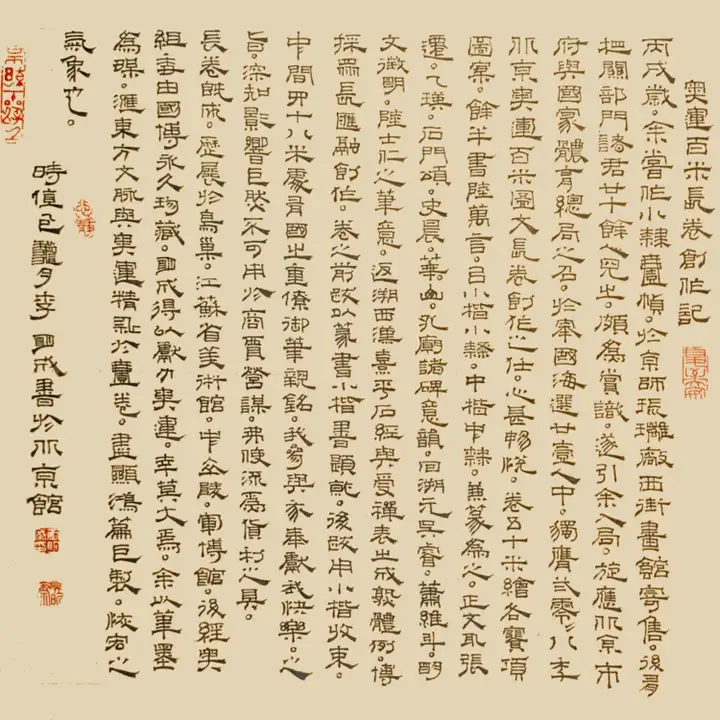 奧運百米長卷創作記
丙戌歲。余嘗作小隸畫幀。於京師琉璃廠西街書館寄售。後有
把關部門諸君廿十餘人見之。頗為賞識。遂引余入局。旋應北京市
府與國家體育總局之召。於舉國海選廿壹人中。獨膺弍零零八年
北京奧運百米圖文長卷創作之任。心甚暢悅。卷五十米繪各賽項
圖案。餘半書陸萬言。以小楷小隸。中楷中隸。兼篆為之。正文取張
遷。乙瑛。石門頌。史晨。華山。孔廟諸碑意韻。回溯元吳睿。蕭維斗。明
文徵明。陸士仁之筆意。返溯西漢熹平石經與受禪表之成熟體例。博
採眾長匯融創作。卷之前跋以篆書小楷書題就。後跋用小楷收束。
中間四十八米處有國之重僚御筆親銘。我參與家奉獻我快樂。之
旨。深知影響巨然不可用於商賈營謀。弗使流為貨利之具。
長卷既成。歷展於鳥巢。江蘇省美術館。中軍博館。後經奧
組委由國博永久珍藏。明成得以獻力奧運。幸莫大焉。余以筆墨
為媒。滙東方文脈與奧運精神於畫卷。盡顯鴻篇巨製。恢宏之
氣象也。
時值巳月季 明成書於北京館